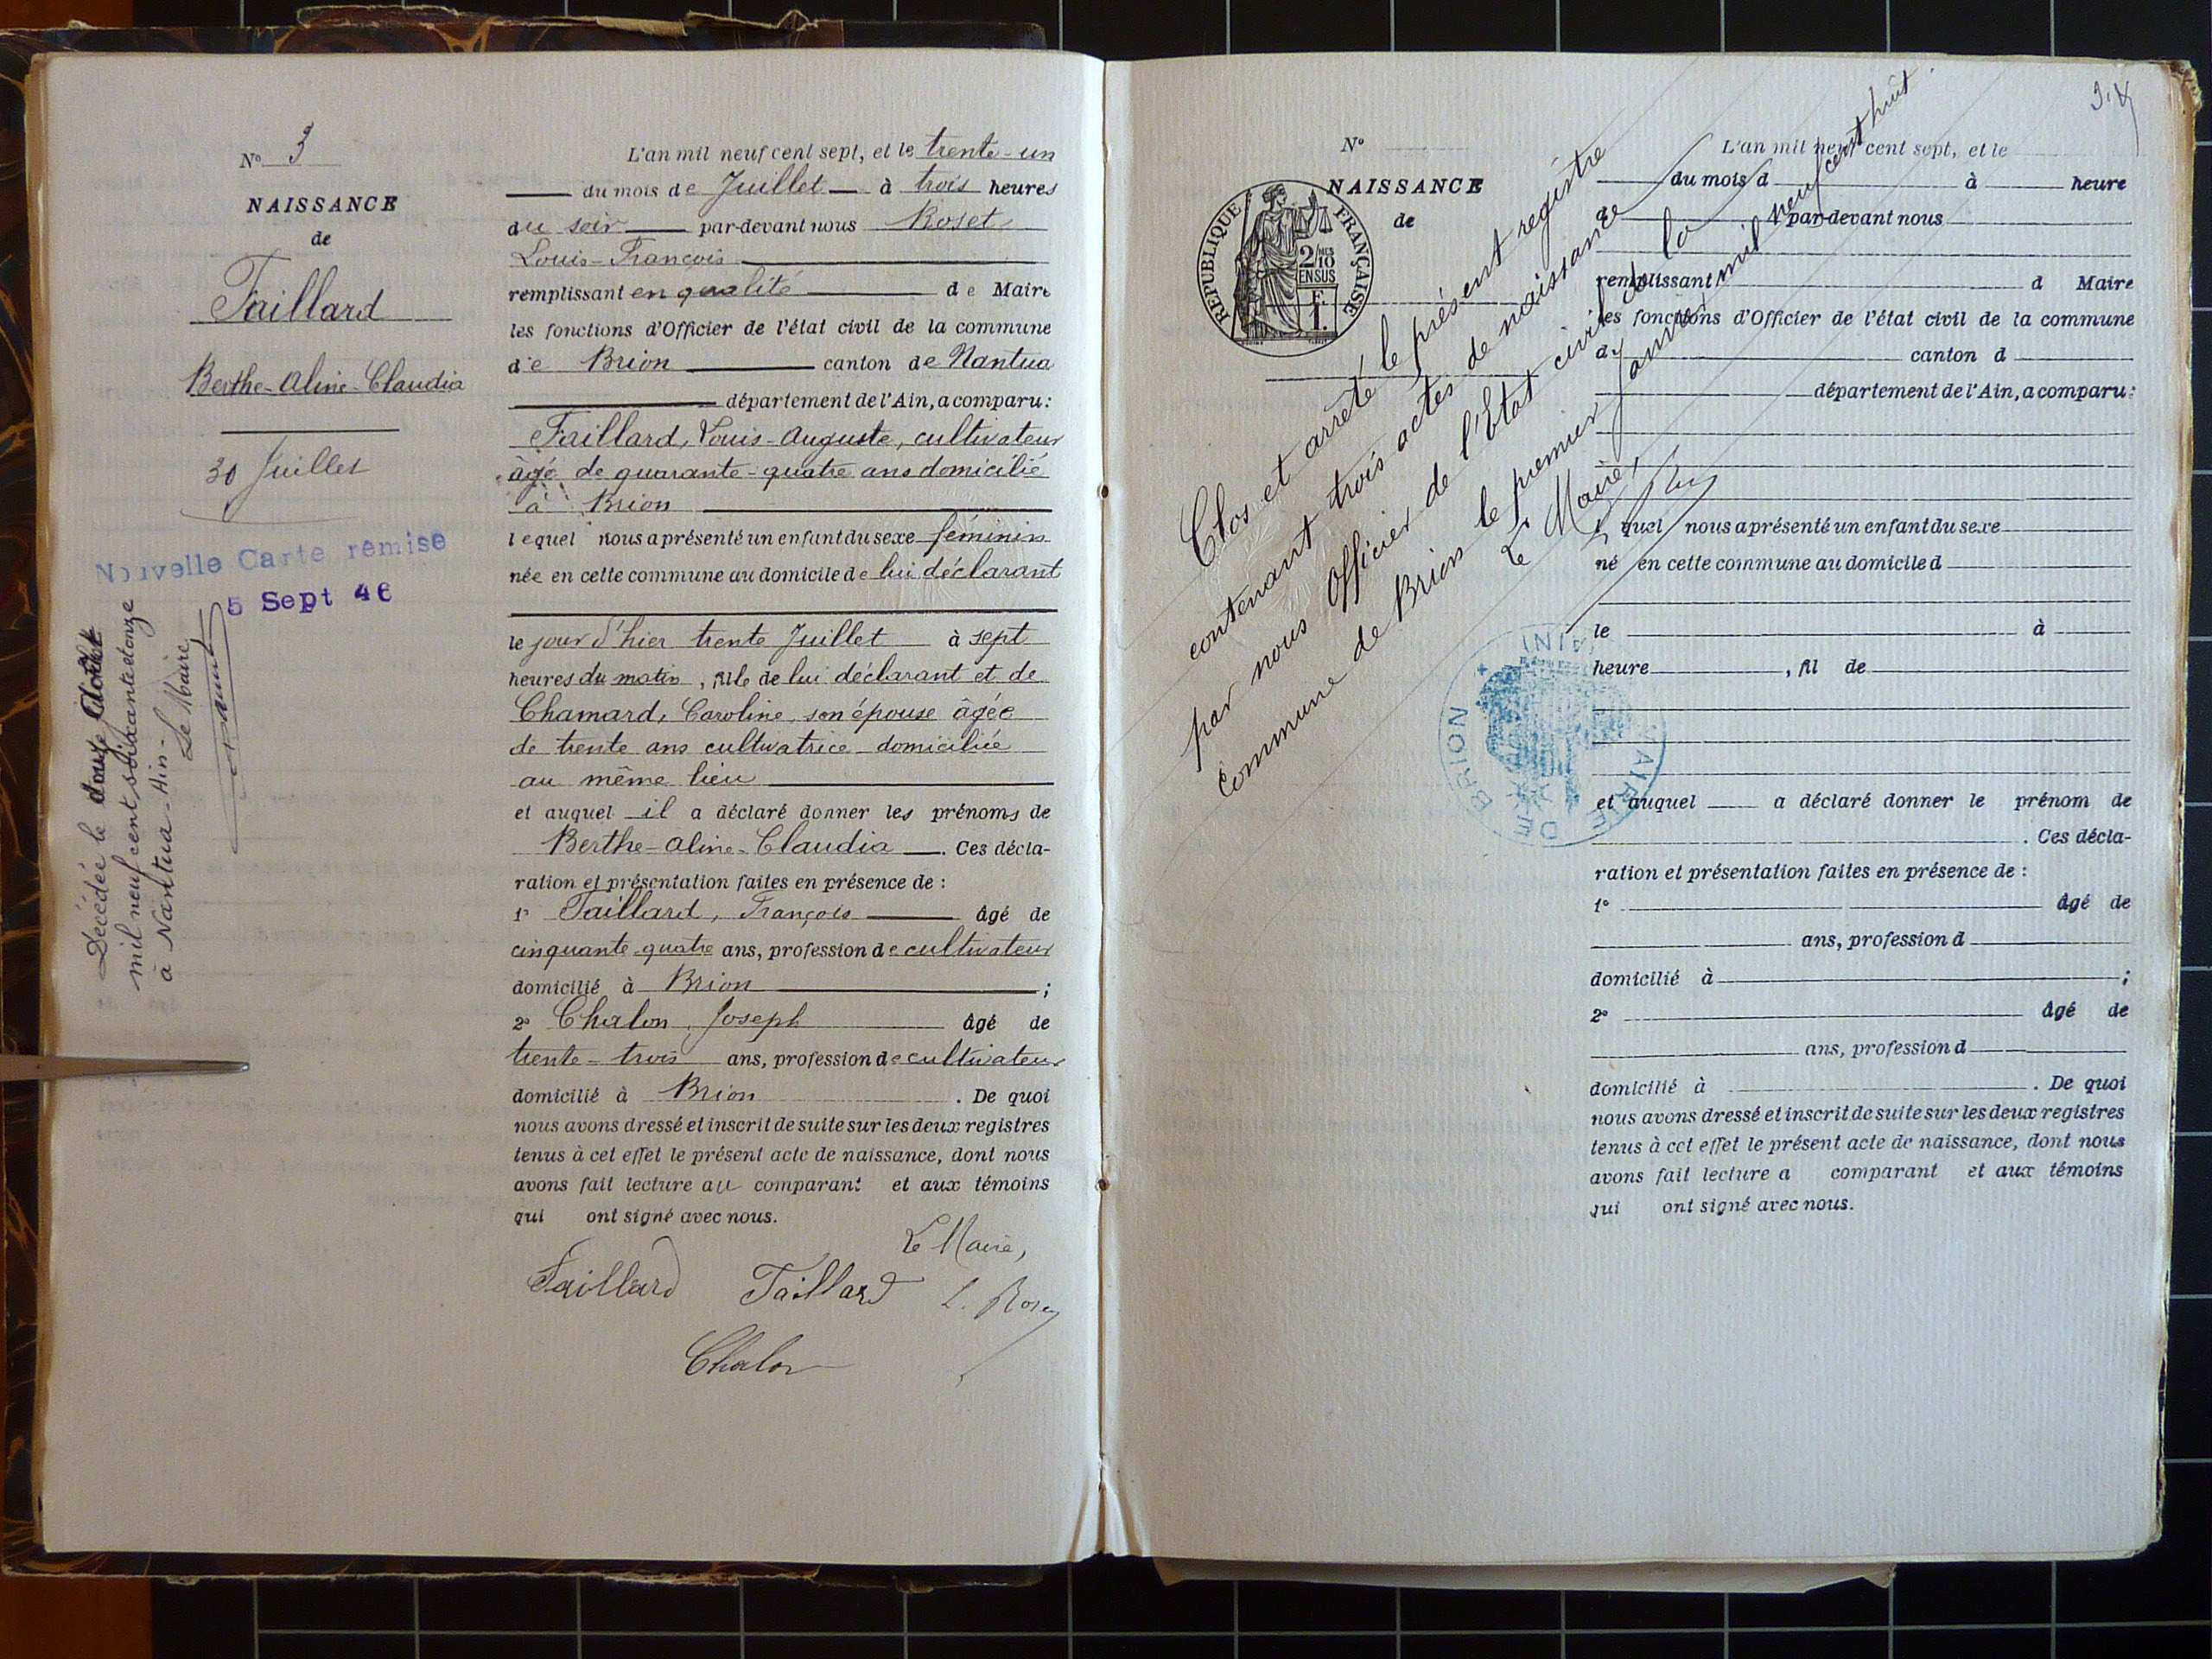 N° 3
NAISSANCE
de
Taillard
Berthe-Aline-Claudia
30 Juillet
Nouvelle Carte remise
5 Sept 46
Décédée le douze
mil neuf cent soixante donze
à Nantua - Ain -
Le Maire
L'an mil neuf cent sept, et le trente-un
du mois de Juillet à trois heures
du soir par-devant nous Roset
Louis-François
remplissant en qualité de Maire
les fonctions d'Officier de l'état civil de la commune
de Brion canton de Nantua
département de l'Ain, a comparu :
Taillard, Louis-Auguste, cultivateur
âgé de quarante-quatre ans domicilié
à Brion
lequel nous a présenté un enfant du sexe féminin
née en cette commune au domicile de lui déclarant
le jour d'hier trente Juillet à sept
heures du matin, fille de lui déclarant et de
Chamard, Caroline, son épouse âgée
de trente ans cultivatrice domiciliée
au même lieu
et auquel il a déclaré donner les prénoms de
Berthe-Aline-Claudia . Ces décla-
ration et présentation faites en présence de :
1° Taillard, François âgé de
cinquante quatre ans, profession de cultivateur
domicilié à Brion ;
2° Chalon, Joseph âgé de
trente-trois ans, profession de cultivateur
domicilié à Brion . De quoi
nous avons dressé et inscrit de suite sur les deux registres
tenus à cet effet le présent acte de naissance, dont nous
avons fait lecture au comparant et aux témoins
qui ont signé avec nous.
Le Maire,
Taillard Taillard L. Roset
Chalon
N°
NAISSANCE
de
RÉPUBLIQUE FRANÇAISE
2/10
EN SUS
F.
1.
Clos et arrêté le présent registre
contenant trois actes de naissance
par nous Officier de l'Etat civil de la
commune de Brion le premier Janvier mil neuf cent huit
Le Maire,
MAIRIE DE BRION
L'an mil neuf cent sept, et le
du mois d à heure
d par-devant nous
remplissant d Maire
les fonctions d'Officier de l'état civil de la commune
d canton d
département de l'Ain, a comparu :
quel nous a présenté un enfant du sexe
né en cette commune au domicile d
le à
heure , fil de
et auquel a déclaré donner le prénom de
. Ces décla-
ration et présentation faites en présence de :
1° âgé de
ans, profession d
domicilié à ;
2° âgé de
ans, profession d
domicilié à . De quoi
nous avons dressé et inscrit de suite sur les deux registres
tenus à cet effet le présent acte de naissance, dont nous
avons fait lecture a comparant et aux témoins
qui ont signé avec nous.